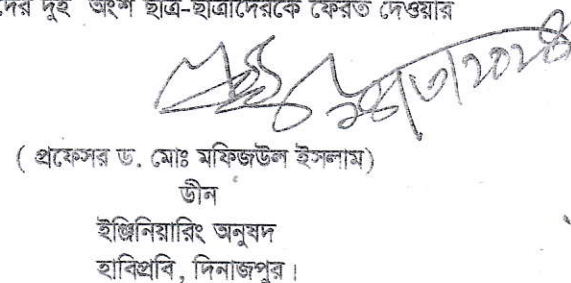 দের দুই অংশ ছাত্র-ছাত্রীদেরকে ফেরত দেওয়ার
( প্রফেসর ড. মোঃ মফিজউল ইসলাম)
ডীন
ইঞ্জিনিয়ারিং অনুষদ
হাবিপ্রবি, দিনাজপুর।